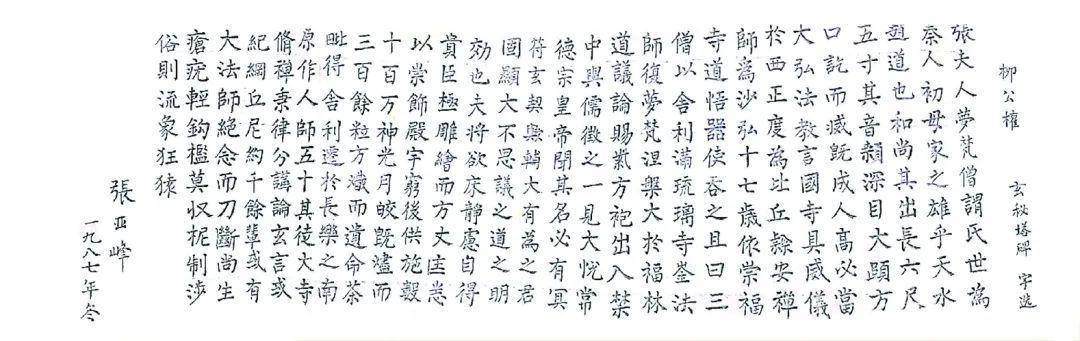 柳公權 玄秘塔碑 字选
張夫人夢梵僧謂氏世為
秦人初母家之雄乎天水
趙道也和尚其出長六尺
五寸其音頯深目大頤方
口訖而滅既成人高必當
大弘法教言國寺具威儀
於西正度為比丘隸安禪
師為沙弘十七歲依崇福
寺道悟器使吞之且曰三
僧以舍利滿琉璃寺鋆法
師復夢梵涅槃大於福林
道議論賜紫方袍出入禁
中與儒徵之一見大悅常
德宗皇帝聞其名必有冥
符玄契與大有為之君
國顯大不思議之道之明
効也夫將欲床靜慮自得
貴臣極雕繪而方丈匡恙
以崇飾殿宇窮後供施數
十百万神光月皎既燼而
三百餘粒方熾而遺命荼
毗得舍利遷於長樂之南
原作人師五十其徒大寺
脩禪秉律分講論玄言或
紀綱丘尼約千餘輩或有
大法師絕念而刀斷尚生
瘡疣輕鈎檻莫収柅制涉
俗則流象狂猿
張亚峰
一九八七年冬